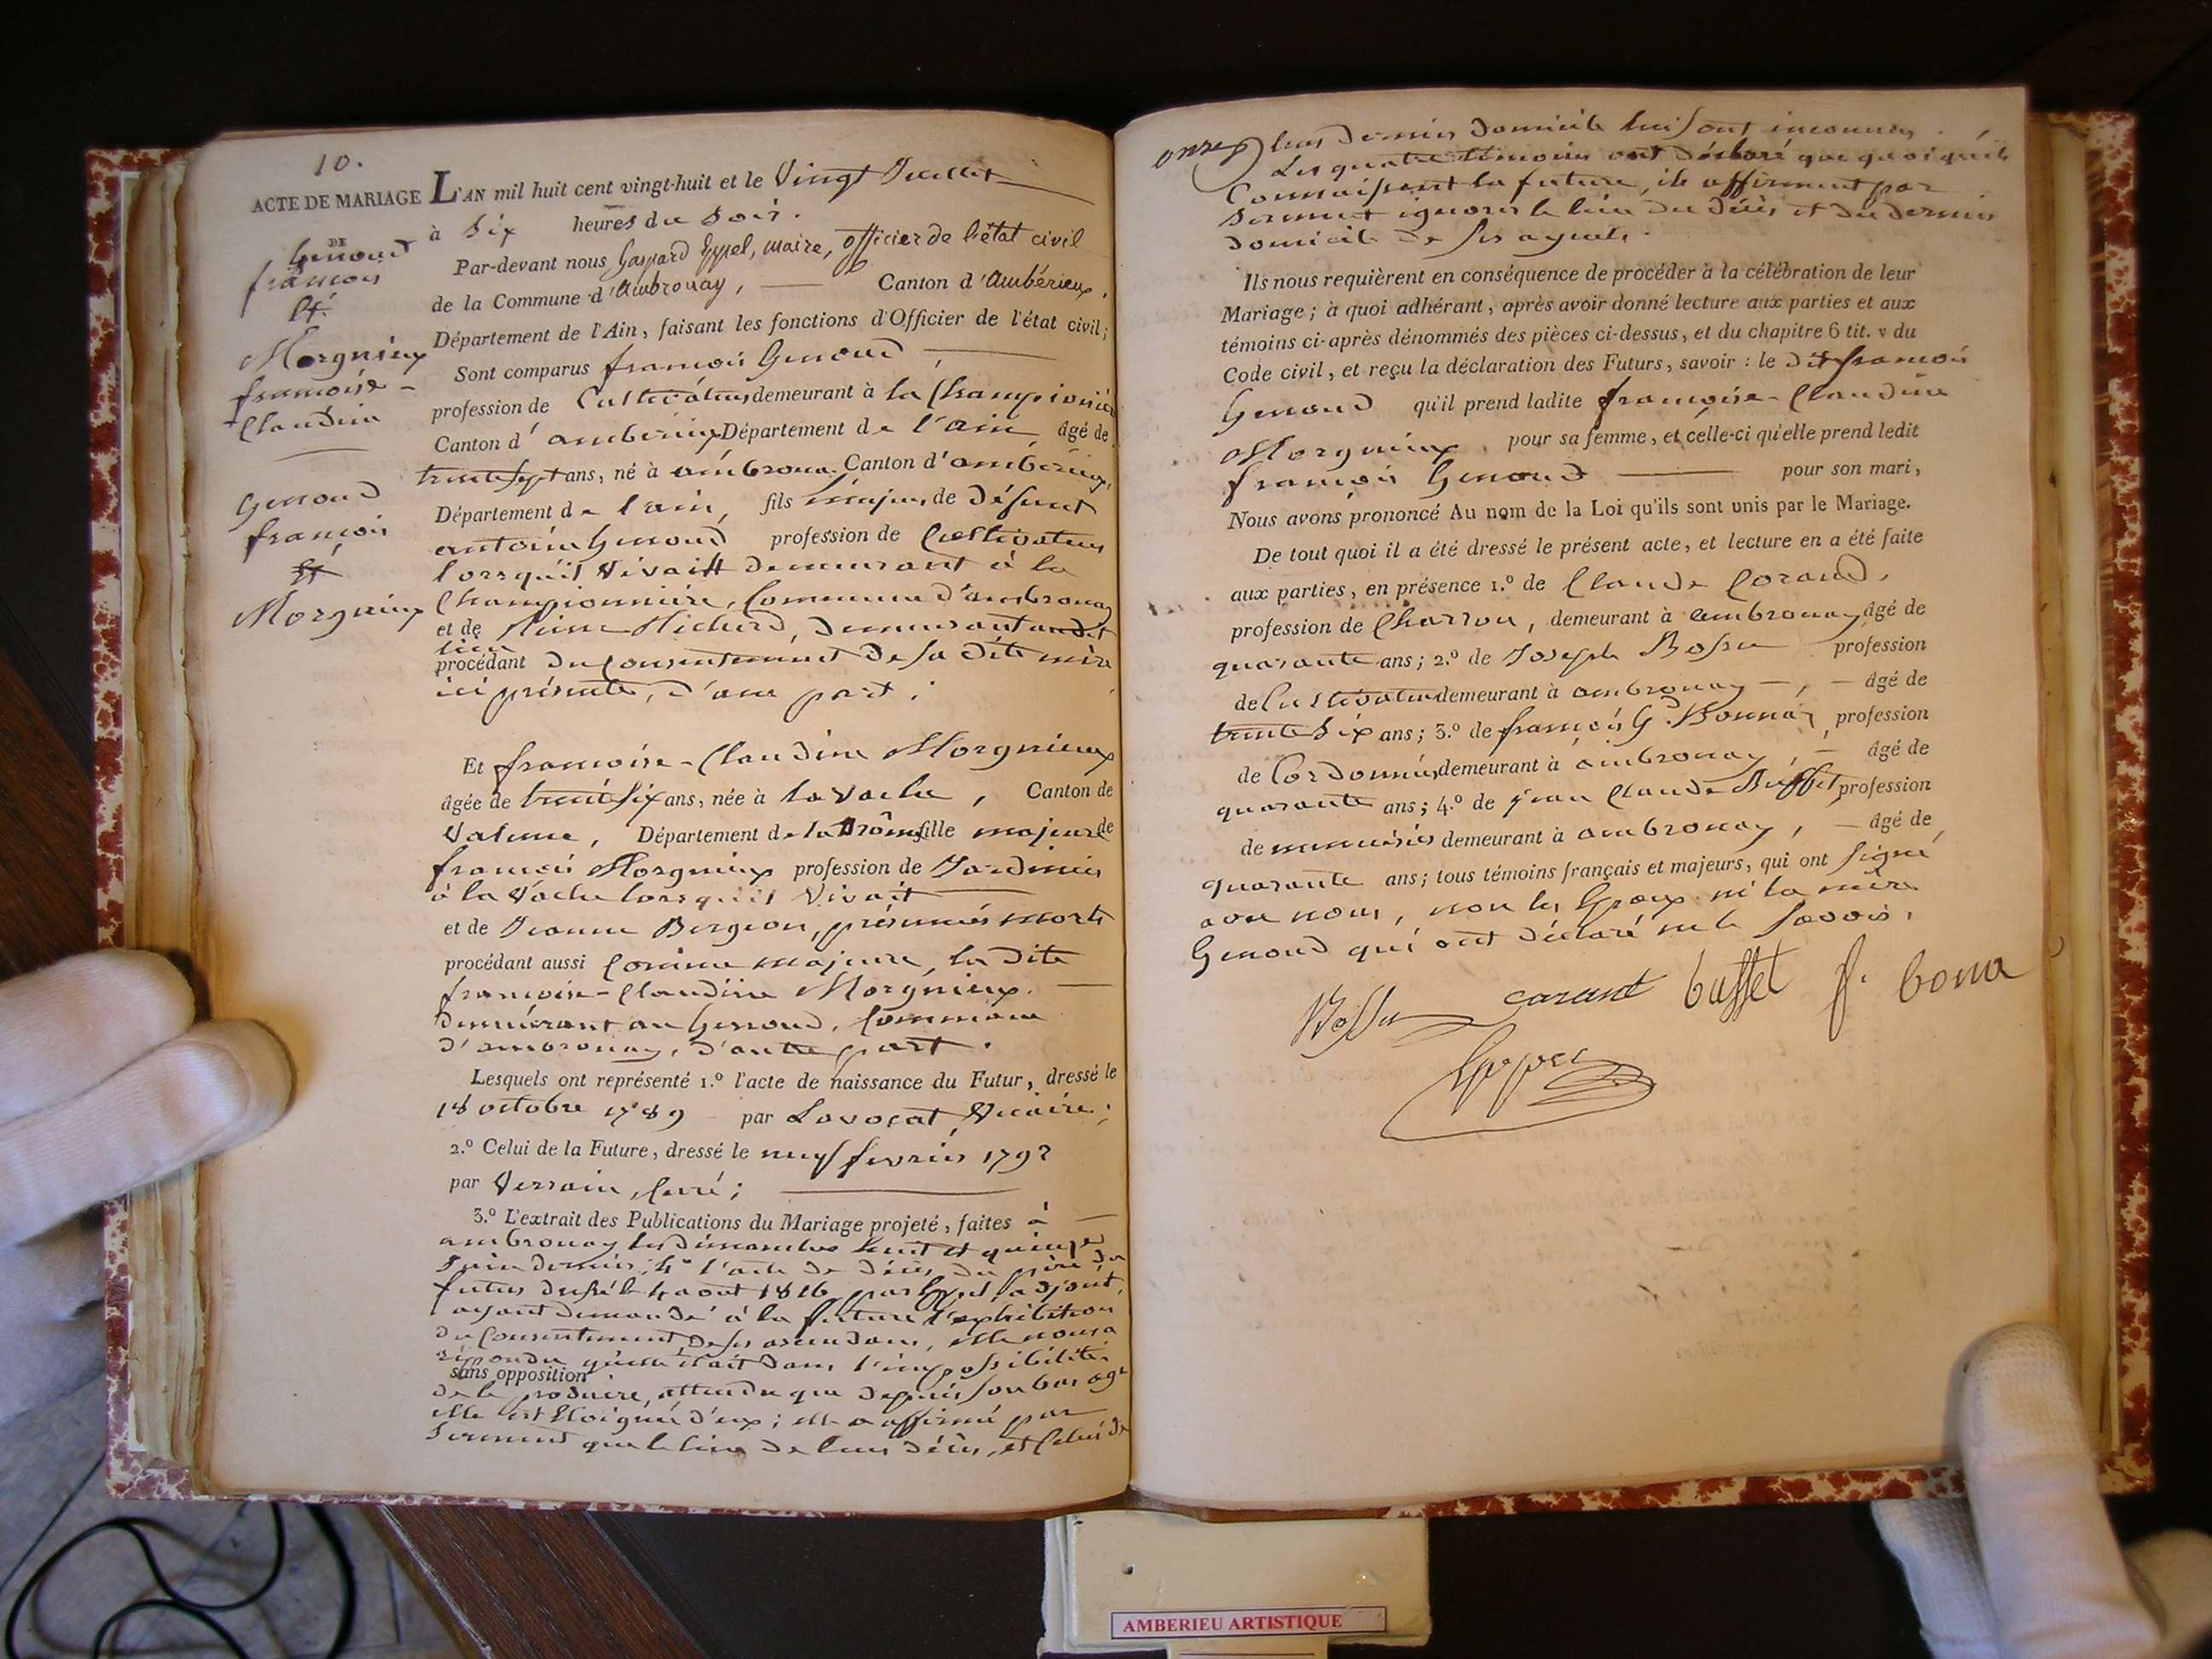 10.
ACTE DE MARIAGE
DE
Genoud
françois
et
Morgnieux
françoise-
Claudine
Genoud
françois
et
Morgnieux
L'AN mil huit cent vingt-huit et le Vingt Juillet
à Six heures du Soir.
Par-devant nous Gaspard Eypel, maire, officier de l'état civil
de la Commune d'Ambronay, Canton d'Ambérieux,
Département de l'Ain, faisant les fonctions d'Officier de l'état civil;
Sont comparus françois Genoud
profession de Cultivateur demeurant à la Championière
Canton d'ambérieux Département de l'ain âgé de
trente sept ans, né à ambrona. Canton d'ambérieux,
Département de l'ain, fils majeur de défunt
antoine Genoud profession de Cultivateur
lorsqu'il Vivait demeurant à la
Championnière, Commune d'ambronay
et de Reine Richerd, demeurant audit
lieu
procédant du Consentement de sa dite mère
ici présente, d'une part;
Et françoise-Claudine Morgnieux
âgée de trente six ans, née à la Vache, Canton de
Valence, Département de la Drôme fille majeure de
françois Morgnieux profession de Jardinier
à la Vache lorsqu'il Vivait
et de Jeanne Bergeon, présumés morts
procédant aussi Comme majeure, la dite
françoise-Claudine Morgnieux.
demeurant au Genoud, Commune
d'ambronay, d'autre part.
Lesquels ont représenté 1.º l'acte de naissance du Futur, dressé le
18 octobre 1789 par Lavocat, Vicaire;
2.º Celui de la Future, dressé le neuf fevrier 1792
par Verrain, Curé;
3.º L'extrait des Publications du Mariage projeté, faites à
ambronay les dimanches huit et quinze
Juin dernier; 4º l'acte de décès du père du
futur dressé le 4 aout 1816 par Eypel, adjoint,
ayant demandé à la future l'exhibition
du Consentement de ses ascendans, elle nous a
répondu qu'elle était dans l'impossibilité
sans opposition
de le produire, attendu que depuis son bas age
elle est Eloignée d'eux; elle a affirmé par
Serment que le lieu de leur décès, et Celui de
leur dernier domicile lui sont inconnus.
Les quatre témoins ont déclaré que quoiqu'ils
Connaissent la future, ils affirment par
serment ignorer le lieu du décès et du dernier
domicile de ses ayeuls.
Ils nous requièrent en conséquence de procéder à la célébration de leur
Mariage; à quoi adhérant, après avoir donné lecture aux parties et aux
témoins ci-après dénommés des pièces ci-dessus, et du chapitre 6 tit. v du
Code civil, et reçu la déclaration des Futurs, savoir: le dit françois
Genoud qu'il prend ladite françoise-Claudine
Morgnieux, pour sa femme, et celle-ci qu'elle prend ledit
françois Genoud pour son mari,
Nous avons prononcé Au nom de la Loi qu'ils sont unis par le Mariage.
De tout quoi il a été dressé le présent acte, et lecture en a été faite
aux parties, en présence 1.º de Claude Corand,
profession de Charron, demeurant à ambronay âgé de
quarante ans; 2.º de Joseph Bossu profession
de Cultivateur demeurant à ambronay, âgé de
trente Six ans; 3.º de françois G. Bonna, profession
de Cordonnier demeurant à ambronay, âgé de
quarante ans; 4.º de jean Claude Buffet profession
de menuisier demeurant à ambronay, âgé de
quarante ans; tous témoins français et majeurs, qui ont signé
avec nous, non les Epoux ni la mère
Genoud qui ont déclaré ne le savoir.
Bossu corant buffet f. bona
Eypel
AMBERIEU ARTISTIQUE